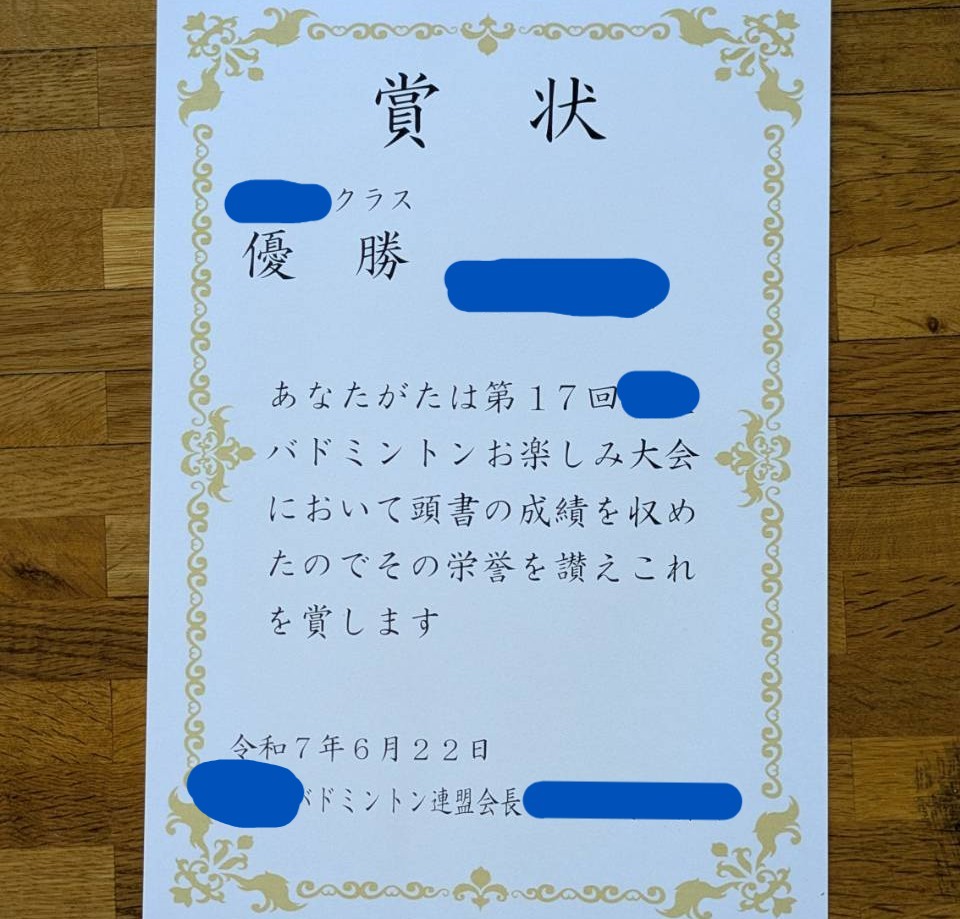 賞 状
クラス
優 勝
あなたがたは第１７回
バドミントンお楽しみ大会
において頭書の成績を収め
たのでその栄誉を讃えこれ
を賞します
令和７年６月２２日
バドミントン連盟会長